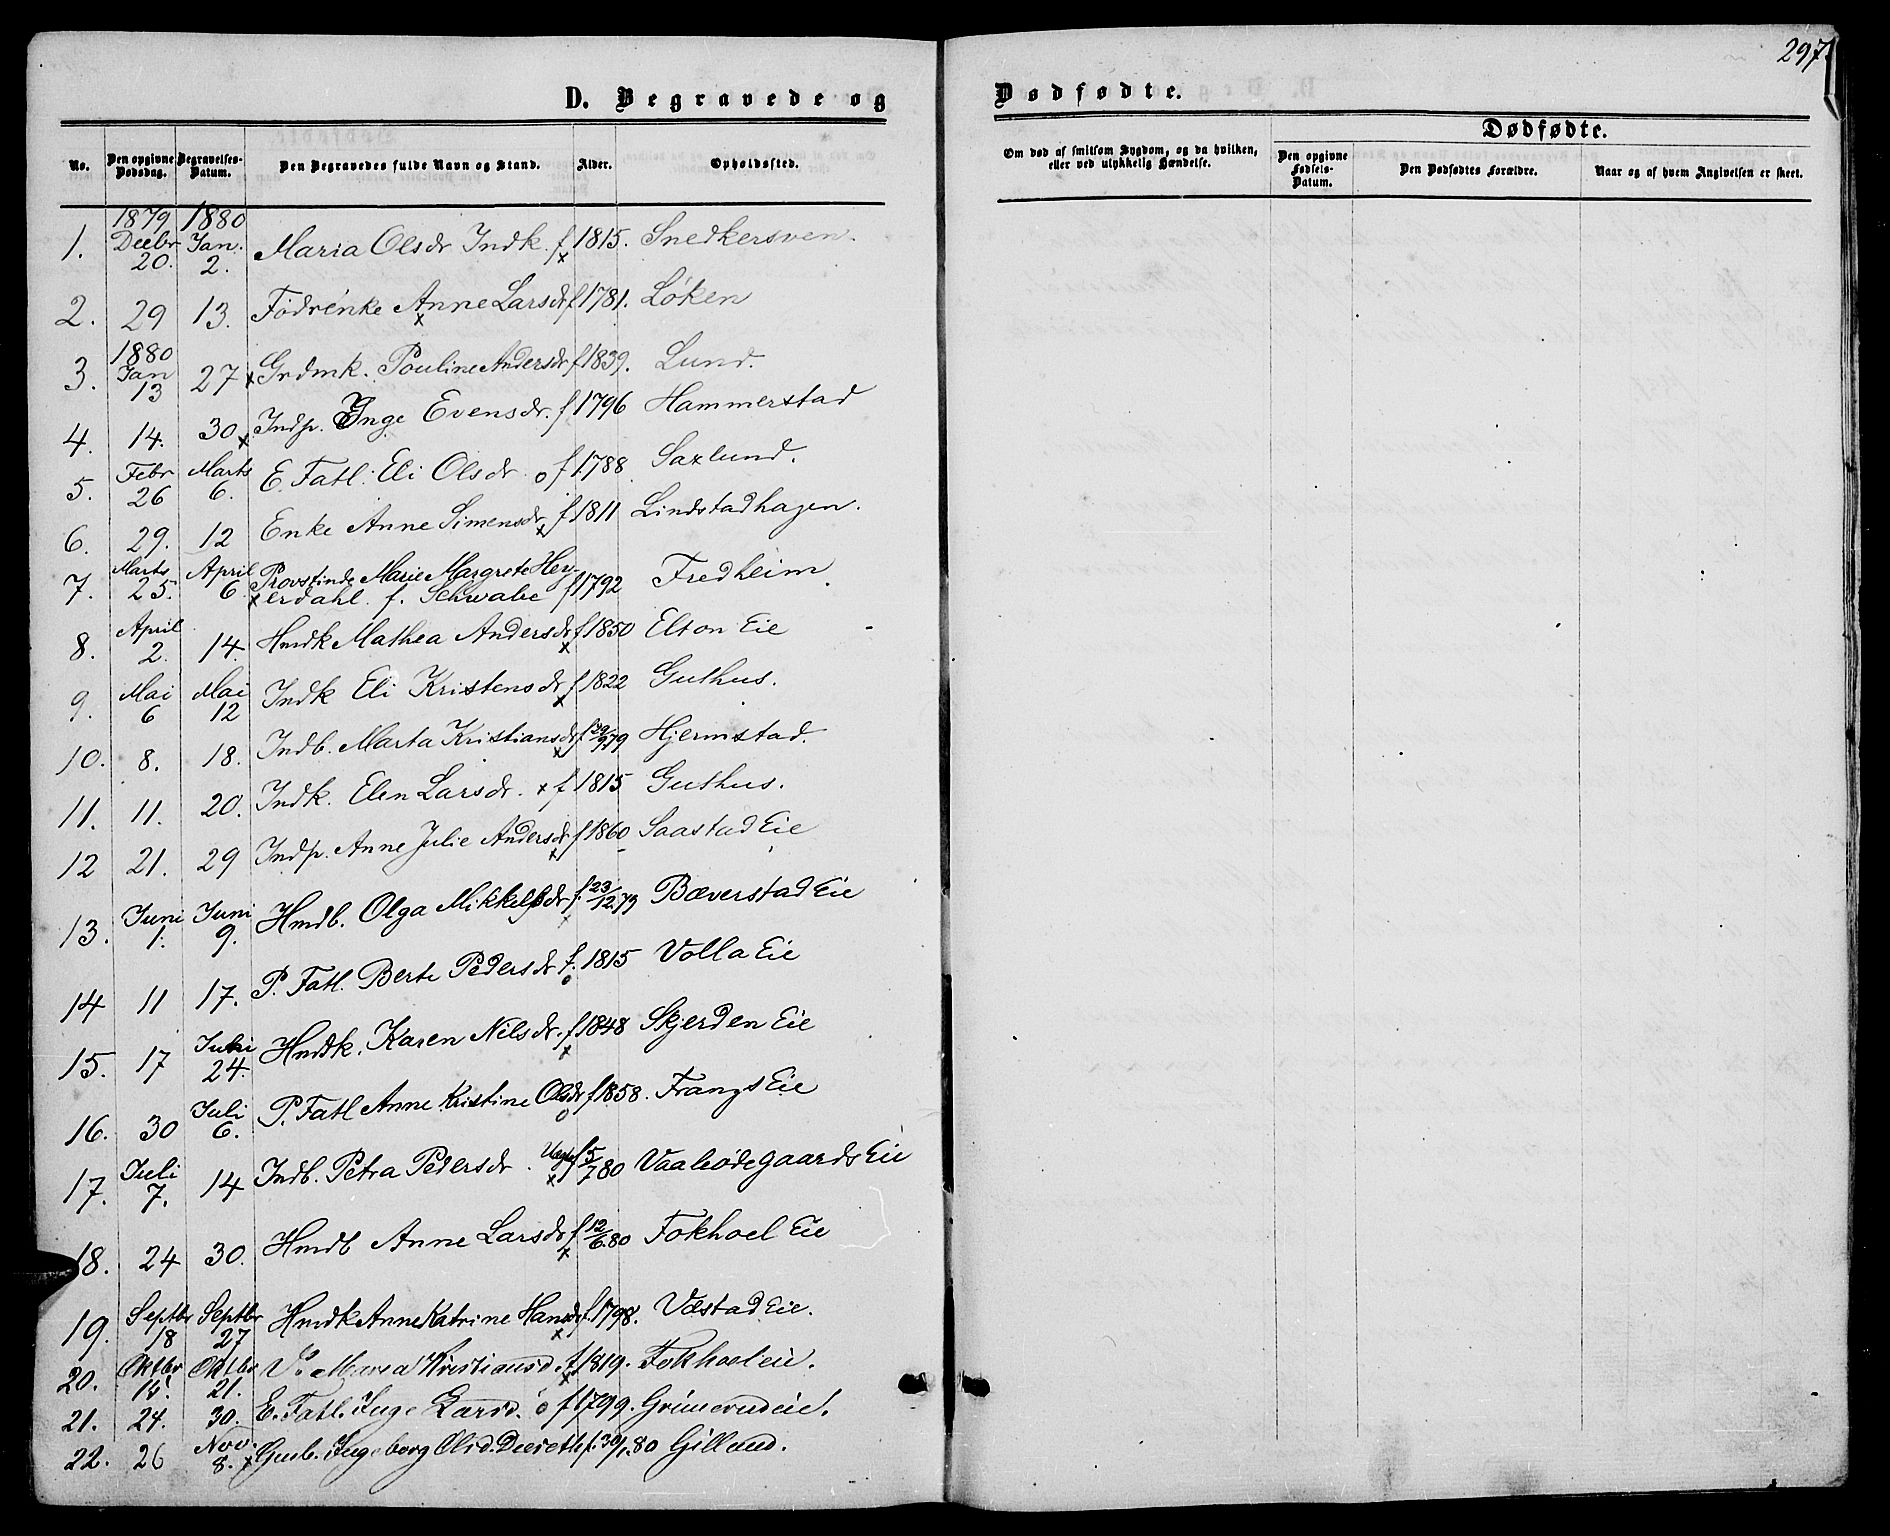 297
D. Begravede og Dødfødte.
No. Den opgivne Dødsdag. Begravelses-Datum. Den Begravedes fulde Navn og Stand. Alder. Opholdssted. Om død af smitsom Sygdom, og da hvilken, eller ved ulykkelig Hændelse. Dødfødte. Den opgivne Fødsels-Datum. Den Dødfødtes Forældre. Naar og af hvem Angivelsen er skeet.
1. 1879 Decbr 20. 1880 Jan. 2. Maria Olsdr Indk. f 1815. Snedkersven.
2. 29 13. Födrenke Anne Larsdr f 1781. Löken
3. 1880 Jan 13 27 x Grdmk. Pouline Andersdr f 1839. Lund.
4. 14. 30 x Indp. Inge Evensdr. f 1796 Hammerstad
5. Febr 26 Marts 6. E. Fatl. Eli Olsdr o f 1788 Saxlund.
6. 29. 12 Enke Anne Simensdr x f 1811 Lindstadhagen.
7. Marts 25. April 6 Provstinde Marie Margrete Hey-
x erdahl f. Schwabe f 1792 Fredheim.
8. April 2. 14. Hmdk Mathea Andersdr x f 1850 Elton Eie
9. Mai 6 Mai 12 Indk Eli Kristensdr x f 1822 Guthus.
10. 8. 18. Indb. Marta Kristiansdr x f 29/9 79 Hjermstad.
11. 11. 20. Indk. Elen Larsdr. x f 1815 Guthus.
12 21. 29 Indp. Anne Julie Andersdr x f 1860 Saastad Eie
13. Juni 1. Juni 9. Hmdb. Olga Mikkelsdr x f. 23/12 79 Bæverstad Eie
14 11 17. P. Fatl. Berte Pedersdr o f. 1815 Volla Eie
15. 17 24. Hmdk. Karen Nilsdr. x f 1848 Skjerden Eie
16. 30 Juli 6. P. Fatl Anne Kristine Olsdr o f 1858. Frangs Eie
17. Juli 7. 14 Indb. Petra Pedersdr. x f 5/7 80 Vaaleödegaards Eie
18. 24 30. Hmdb Anne Larsdr x f 12/6 80 Fokhoel Eie
19. Septbr 18 Septbr 27 Hmdk Anne Katrine Hansdr x f. 1798. Væstad Eie.
20. Oktbr 14. Oktbr 21. Maria Kristiansd. x f 1819. Fokhoel eie.
21. 24. 30. E. Fatl. Inge Larsd. o f 1799. Grimerud eie.
22. 26 Nov. 8. x Gmb. Ingeborg Olsd. f. 30/1 80 Gillund.